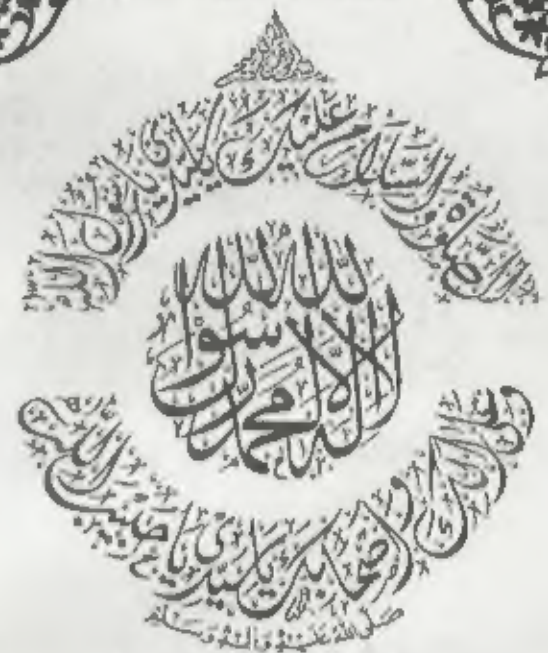 الصلوة والسلام علیک یا سیدی یا رسول الله
لا اله الا الله محمد رسول الله
وعلی آلک واصحابک یا سیدی یا حبیب الله
صلی الله علیه وآله وسلم